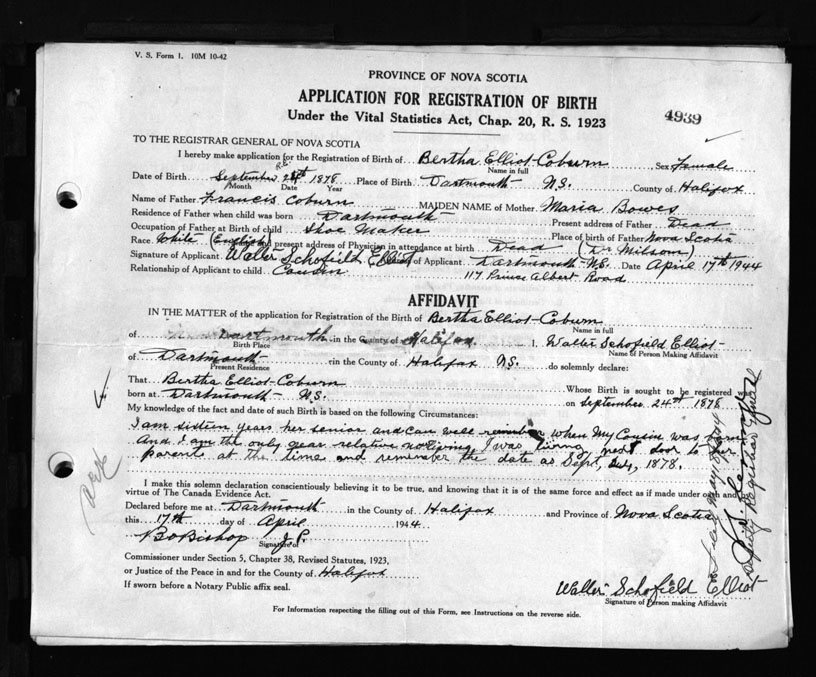 V. S. Form 1. 10M 10-42
PROVINCE OF NOVA SCOTIA
APPLICATION FOR REGISTRATION OF BIRTH
4939
Under the Vital Statistics Act, Chap. 20, R. S. 1923
TO THE REGISTRAR GENERAL OF NOVA SCOTIA
I hereby make application for the Registration of Birth of Bertha Elliot-Coburn Sex Female
Name in full
Date of Birth September 24th 1878 Place of Birth Dartmouth N.S. County of Halifax
Month Date Year
Name of Father Francis Coburn MAIDEN NAME of Mother Maria Bowes
Residence of Father when child was born Dartmouth Present address of Father Dead
Occupation of Father at Birth of child Shoe Maker Place of birth of Father Nova Scotia
Race White (English) and present address of Physician in attendance at birth Dead (Dr Milsom)
Signature of Applicant Walter Schofield Elliot of Applicant Dartmouth N.S. Date April 17th 1944
Relationship of Applicant to child Cousin 117 Prince Albert Road
AFFIDAVIT
IN THE MATTER of the application for Registration of the Birth of Bertha Elliot-Coburn
Name in full
of Dartmouth in the County of Halifax I, Walter Schofield Elliot
Birth Place Name of Person Making Affidavit
of Dartmouth in the County of Halifax N.S. do solemnly declare:
Present Residence
That Bertha Elliot-Coburn Whose Birth is sought to be registered was
born at Dartmouth N.S. on September 24th 1878
My knowledge of the fact and date of such Birth is based on the following Circumstances:
I am sixteen years her senior and can well remember when My Cousin was born
And I am the only near relative now living, I was living next door to her
parents at the time and remember the date as Sept, 24, 1878.
I make this solemn declaration conscientiously believing it to be true, and knowing that it is of the same force and effect as if made under oath and by
virtue of The Canada Evidence Act.
Declared before me at Dartmouth in the County of Halifax and Province of Nova Scotia
this 17th day of April 1944
BoBishop J.P.
Signature of
Commissioner under Section 5, Chapter 38, Revised Statutes, 1923,
or Justice of the Peace in and for the County of Halifax
If sworn before a Notary Public affix seal.
Walter Schofield Elliot
Signature of Person making Affidavit
For Information respecting the filling out of this Form, see Instructions on the reverse side.
Deputy Registrar General